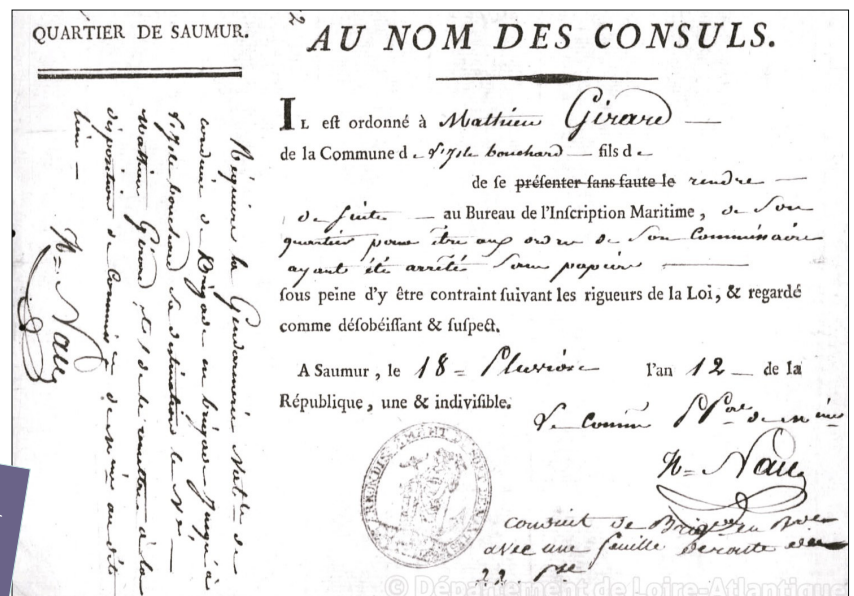 QUARTIER DE SAUMUR.
AU NOM DES CONSULS.
IL eſt ordonné à Mathieu Girard
de la Commune de l'Isle bouchard fils de
de ſe préſenter ſans faute le rendre
de ſuite au Bureau de l'Inſcription Maritime, de Son
quartier pour être aux ordre de Son Commissaire
ayant été arrêté Sans papier
ſous peine d'y être contraint ſuivant les rigueurs de la Loi, & regardé
comme déſobéiſſant & ſuſpect.
A Saumur, le 18 = Pluviose l'an 12 de la
République, une & indiviſible.
Le Commre de mine
N= Nau
conduit de Brigade en
avec une feuille de route
22
Réquiere la Gendarmerie Natle de
conduire de Brigade en brigade jusqu'à
l'Isle bouchard Sa destination le Né
Mathieu Girard, et de le remettre à la
disposition du Commissre de mine au dit
lieu
N= Nau
© Département de Loire-Atlantique